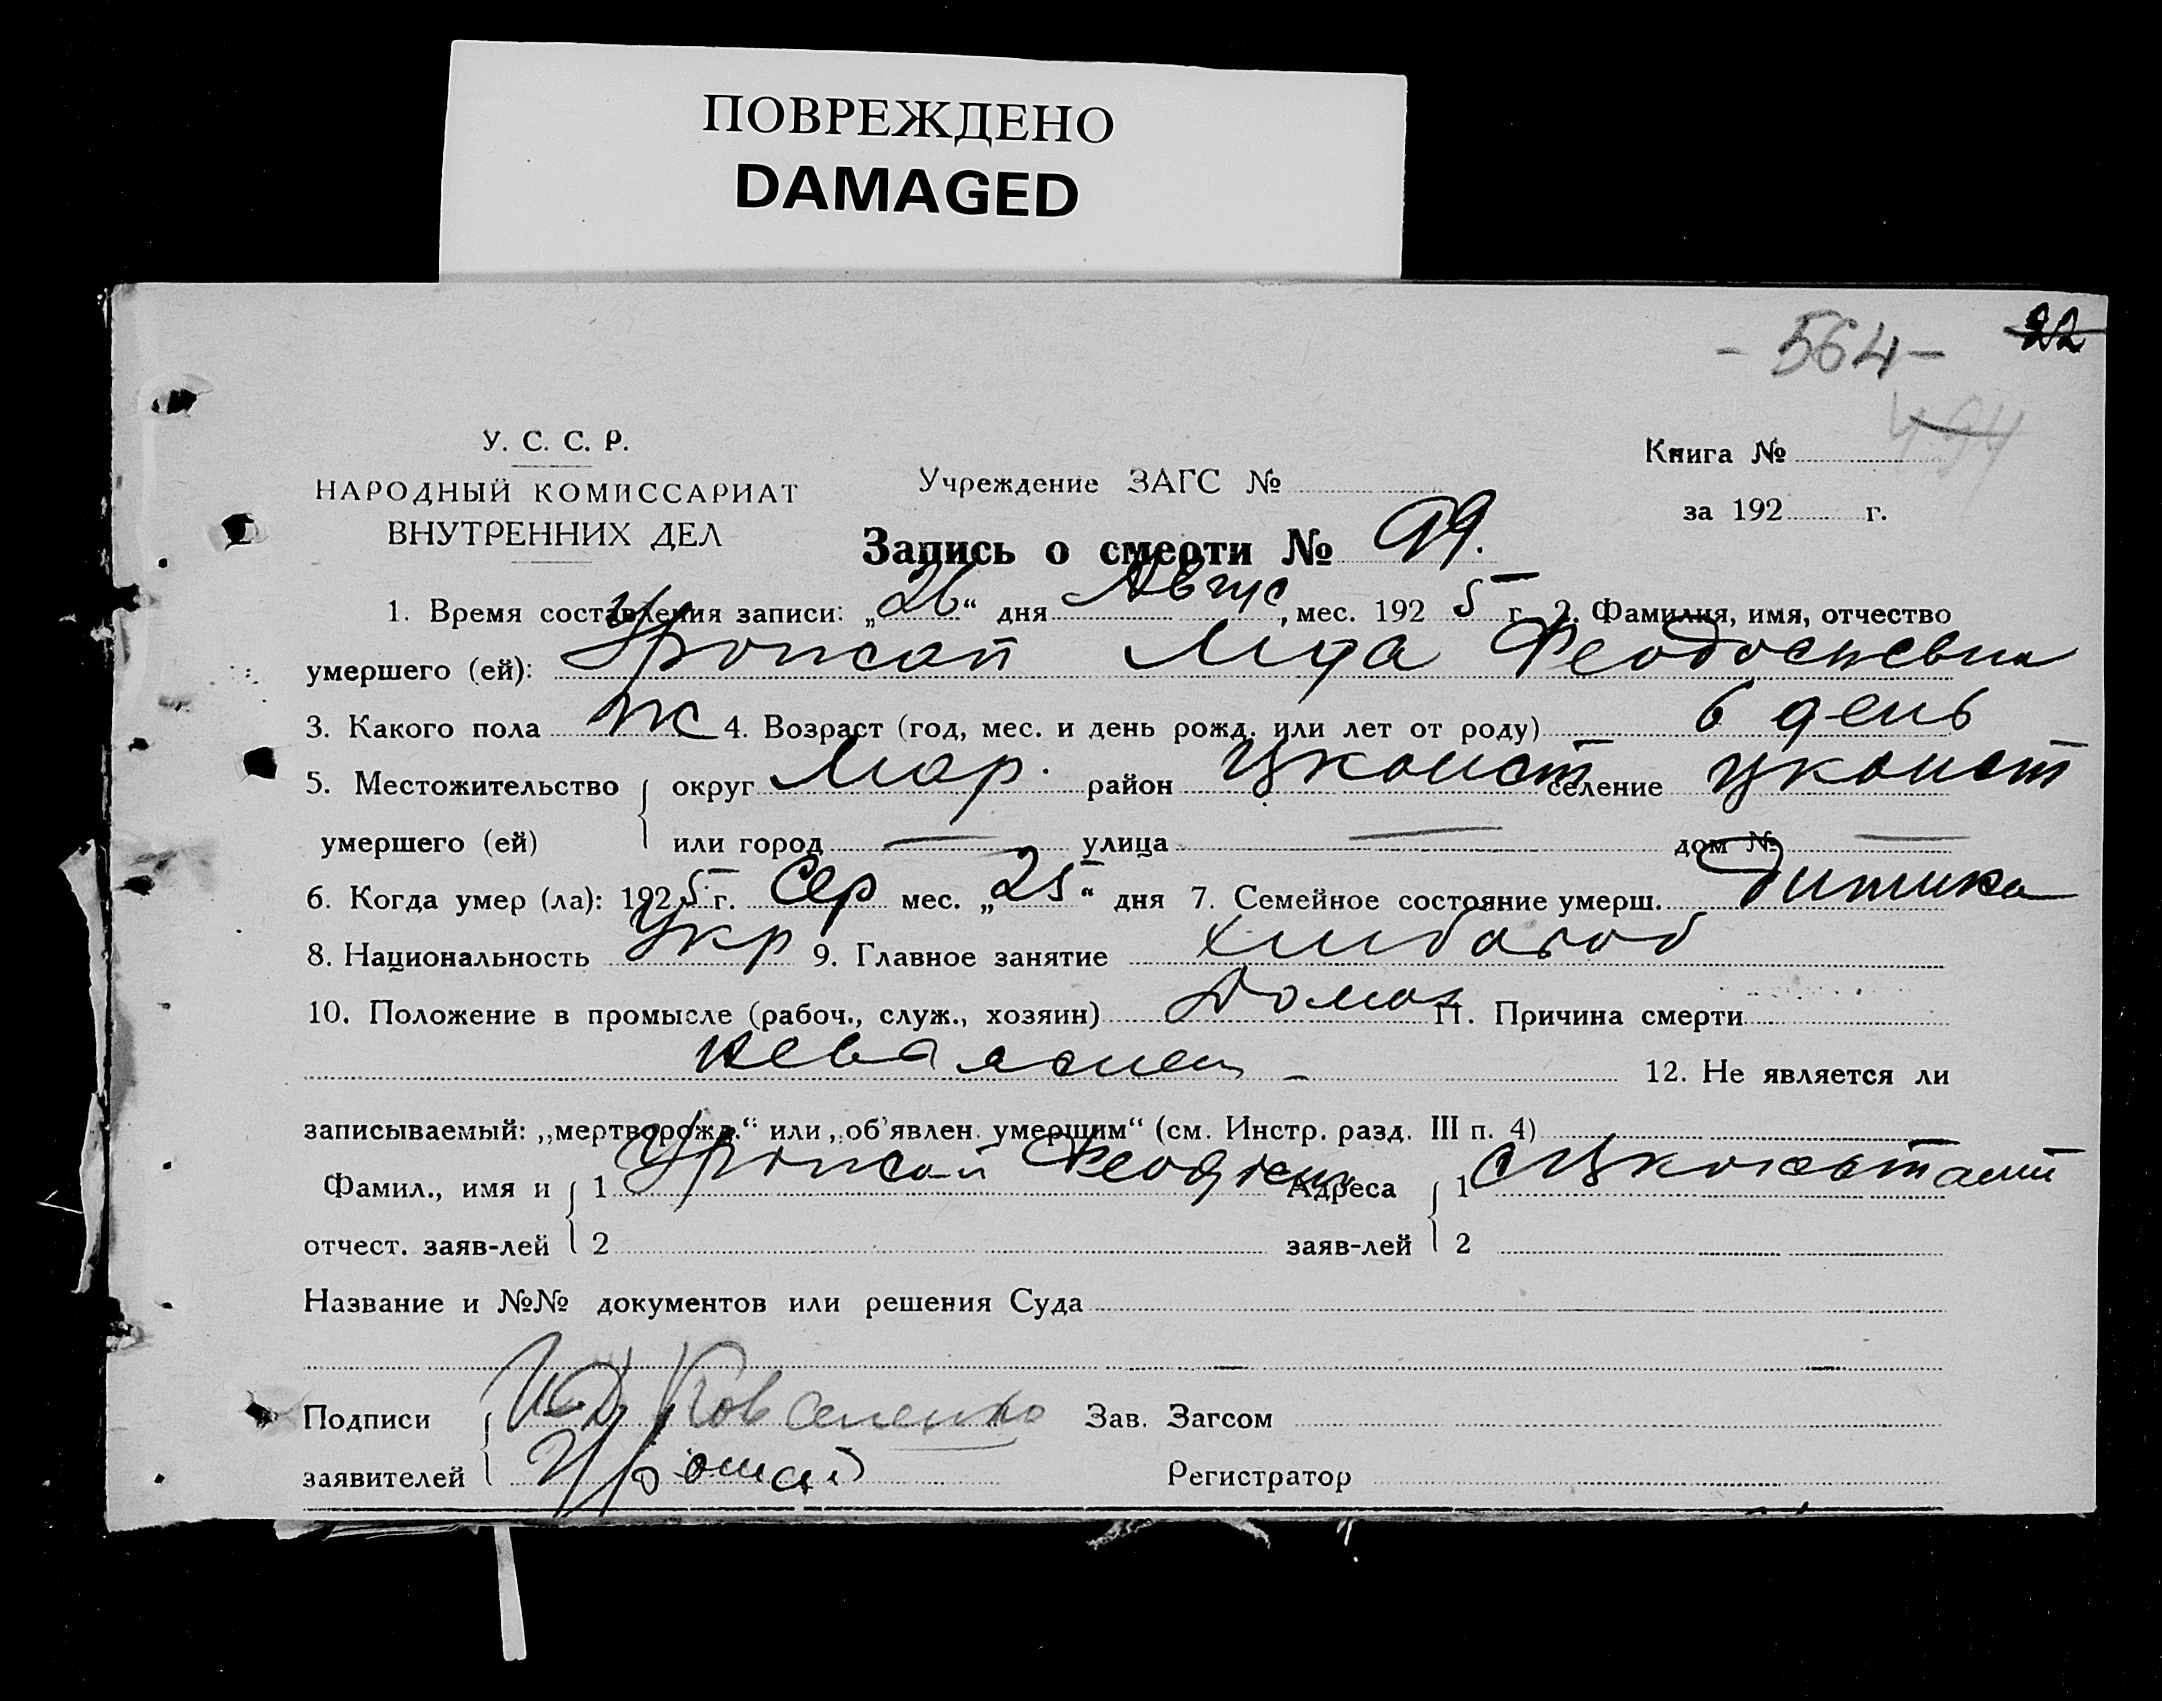 ПОВРЕЖДЕНО
DAMAGED
- 564 - 22
494
У. С. С. Р.
НАРОДНЫЙ КОМИССАРИАТ
ВНУТРЕННИХ ДЕЛ
Учреждение ЗАГС №
Книга №
за 192 г.
Запись о смерти № 99.
1. Время составления записи: „26“ дня Август, мес. 1925 г. 2. Фамилия, имя, отчество
умершего (ей): Феодосиевна
3. Какого пола ж 4. Возраст (год, мес. и день рожд. или лет от роду) 6 день
5. Местожительство { округ Мар. район селение
умершего (ей) или город — улица — дом № —
6. Когда умер (ла): 1925 г. Сер мес. „25“ дня 7. Семейное состояние умерш. Дитина
8. Национальность Укр 9. Главное занятие хлибороб
10. Положение в промысле (рабоч., служ., хозяин) Дома 11. Причина смерти
12. Не является ли
записываемый: „мертворожд.“ или „об'явлен. умершим“ (см. Инстр. разд. III п. 4)
Фамил., имя и { 1 Адреса { 1
отчест. заяв-лей 2 заяв-лей 2
Название и №№ документов или решения Суда
Подписи { Коваленко Зав. Загсом
заявителей Регистратор